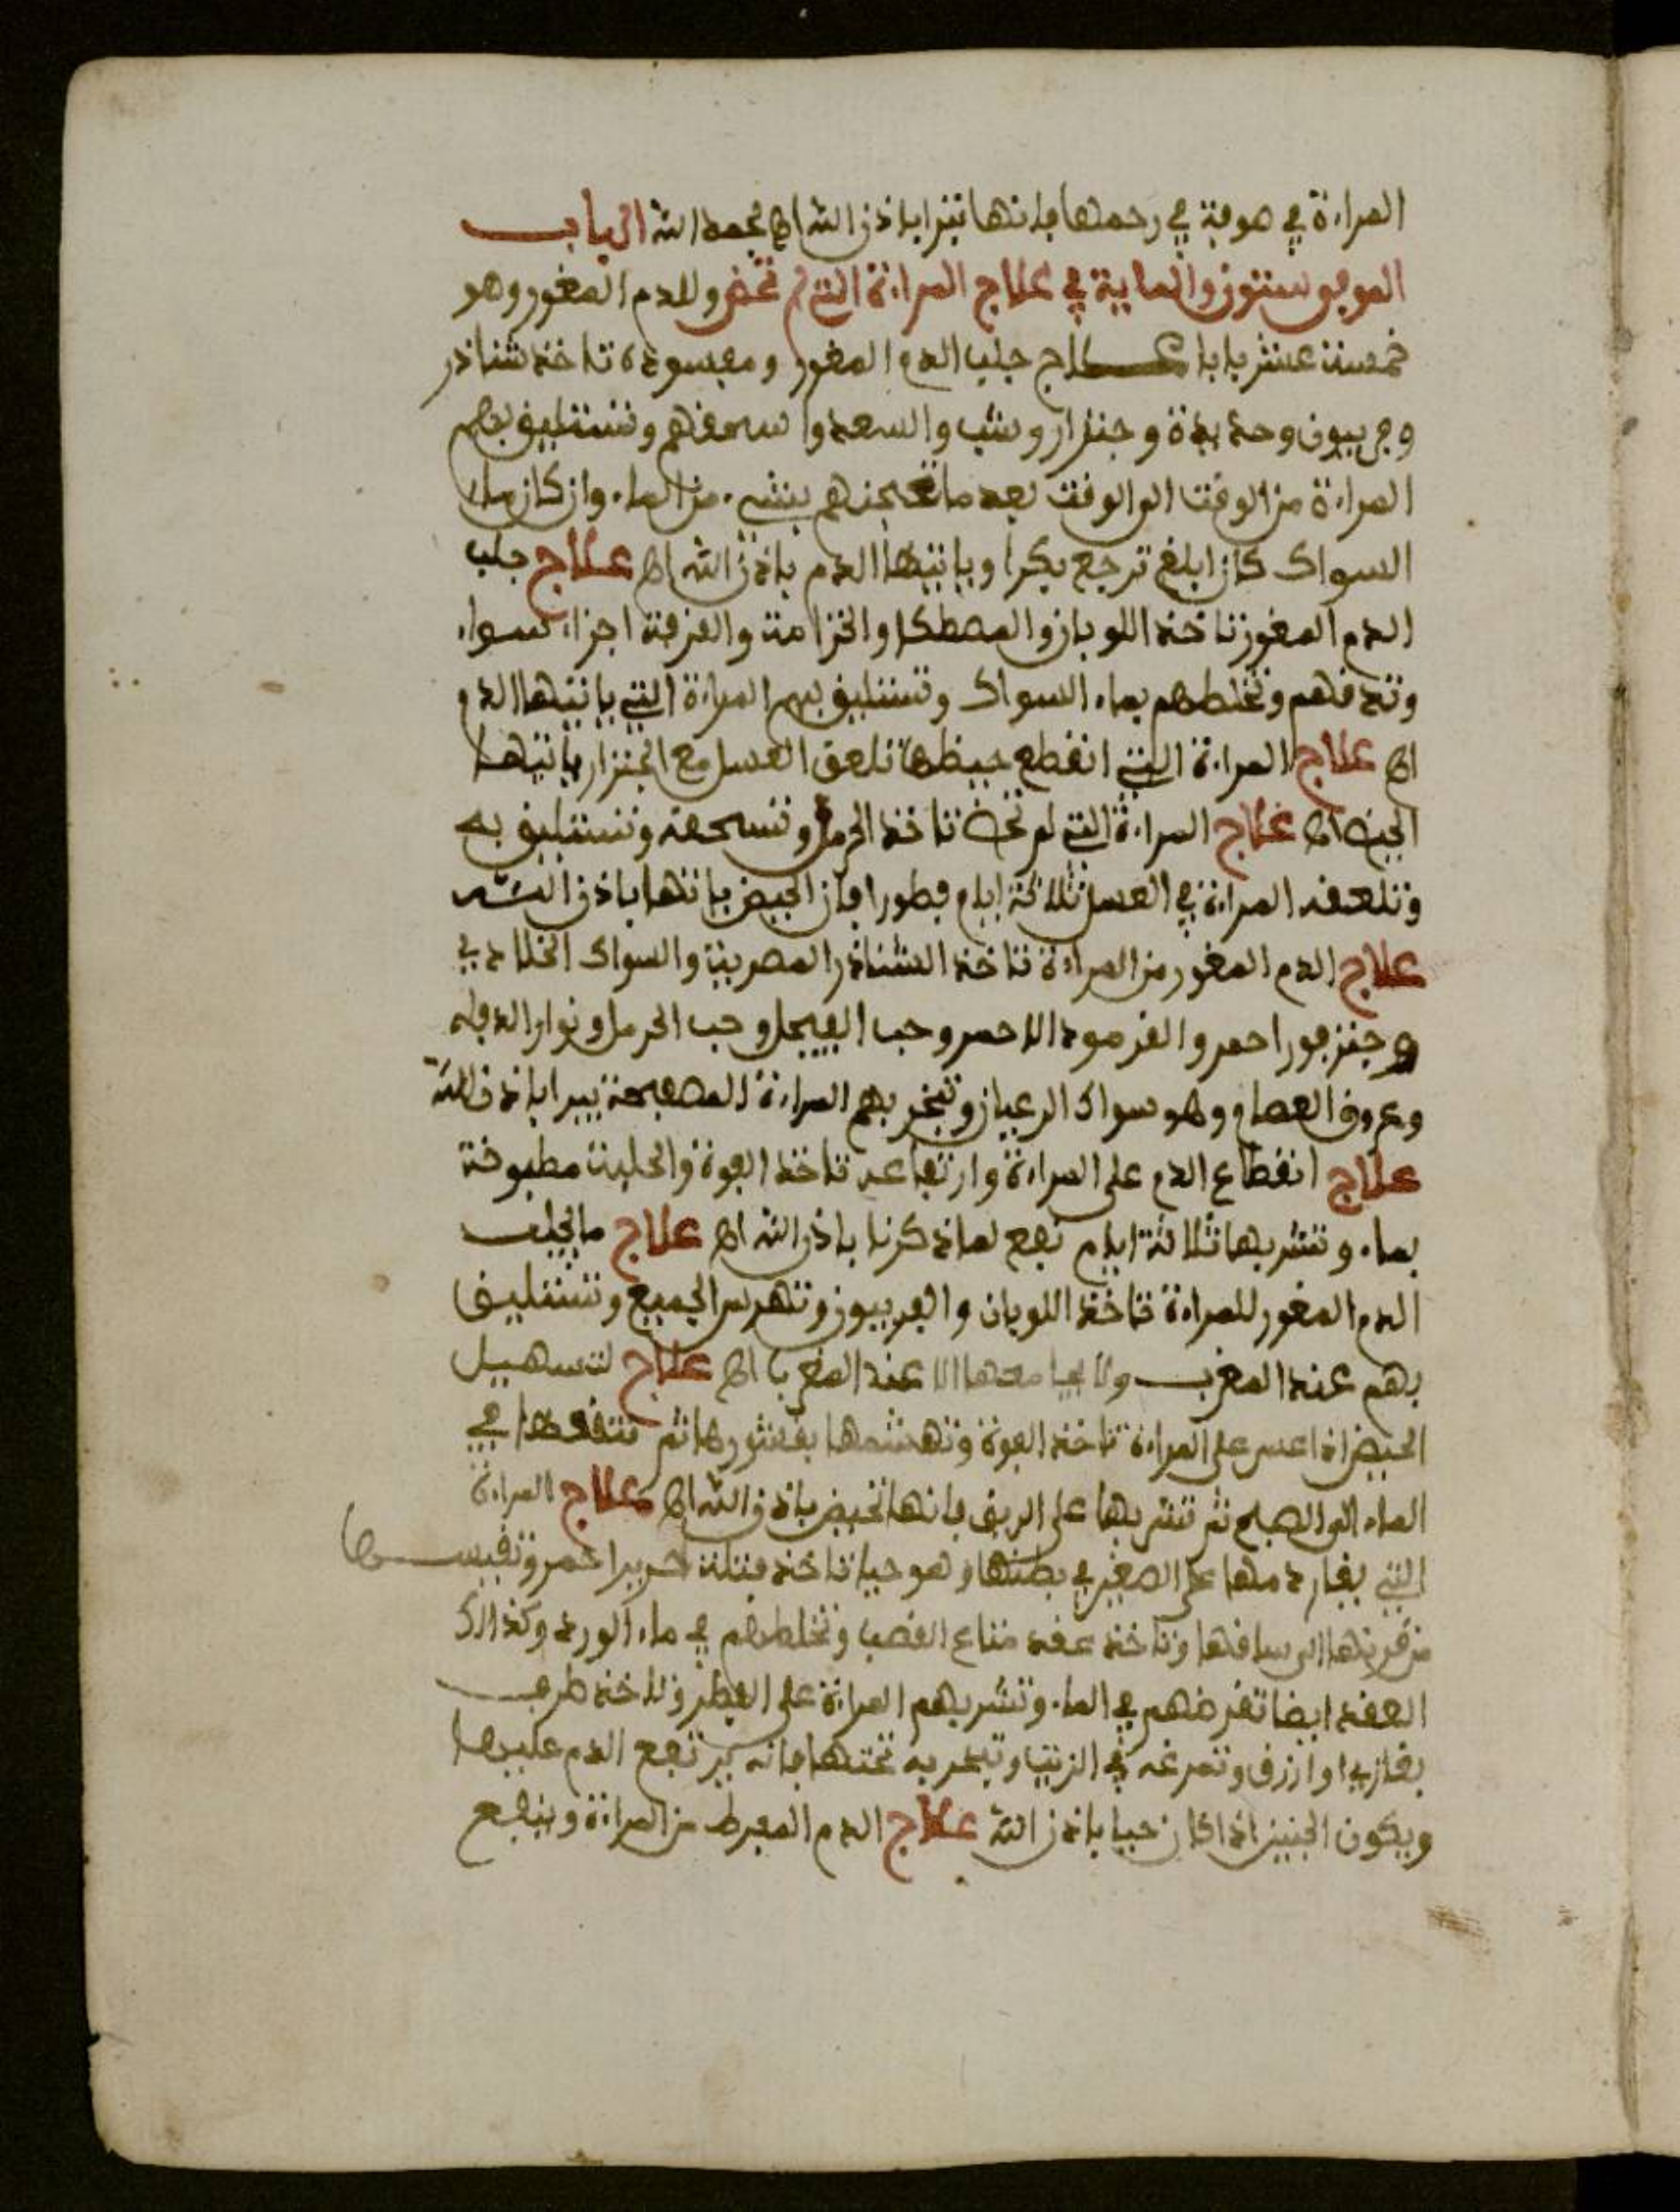 المراءة في صوفة في رحمها فانها تبرا باذن الله اه بحمد الله الباب
الموفي ستون والماية في علاج المراءة التي لم تحض وللدم المغور وهو
خمست عشر بابا علاج جلب الدم المغور ومفسوده تاخذ شناذر
وفربيون وحدبدة وجنزار وشب والسعدوا سحقهم وتستليف بهم
المراءة من الوقت الى الوقت بعد ما تعجنهم بشيء من الماء وان كان ماء
السواك كان ابلغ ترجع بكرا وياتيها الدم باذن الله اه علاج جلب
الدم المغور تاخذ اللوبان والمصطكا والخزامة والقرفة اجزاء سواء
وتدقهم وتخلطهم بماء السواك وتستليف بهم المراءة التي ياتيها الدم
اه علاج المراءة التي انقطع حيظها تلعق العسل مع الجنزار ياتيها
الحيض اه علاج المراءة التي لم تحض تاخذ الحرمل وتسحقه وتستليف به
وتلعقه المراءة في العسل ثلاثة ايام فطورا فان الحيض ياتها باذن الله
علاج الدم المغور من المراءة تاخذ الشناذر المصرية والسواك الخلادي
وجنزفور احمر والقرمود الاحمر وحب الفيجل وحب الحرمل ونوار الدفله
وعروق العصام وهو سواك الرعيان وتبخر بهم المراءة الصحيحة تبرا باذن الله
علاج انقطاع الدم على المراءة وارتفاعه تاخذ الفوة والحلبة مطبوخة
بماء وتشربها ثلاثة ايام نفع لما ذكرنا باذن الله اه علاج ما يجلب
الدم المغور للمراءة تاخذ اللوبان والفربيون وتهرس الجميع وتستليف
بهم عند المغرب ولا يجامعها الا عند المغرب اه علاج لتسهيل
الحيض اذا عسر على المراءة تاخذ الفوة وتهشمها بقشورها ثم تنقعها في
الماء الى الصبح ثم تشربها على الريق فانها تحيض باذن الله اه علاج المراءة
التي يغار دمها على الصغير في بطنها وهو حيا تاخذ فتلة حرير احمر وتقيسها
من قرنها الى ساقها وتاخذ عقد متاع القصب وتخلطهم في ماء الورد وكذالك
العقد ايضا تقرضهم في الماء وتشربهم المراءة على الفطر وتاخذ طرف
بقازيا وازرق وتمرغه في الزيت وتبخر به تحتها فانه يرتفع الدم عليها
ويكون الجنين اذا كان حيا باذن الله علاج الدم المفرط من المراءة وينفع